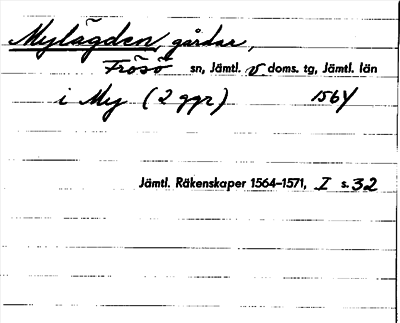 Mylägden, gårdar,
Frösö sn, Jämtl. v doms. tg, Jämtl. län
i My (2 ggr) 1564
Jämtl. Räkenskaper 1564–1571, I s. 32